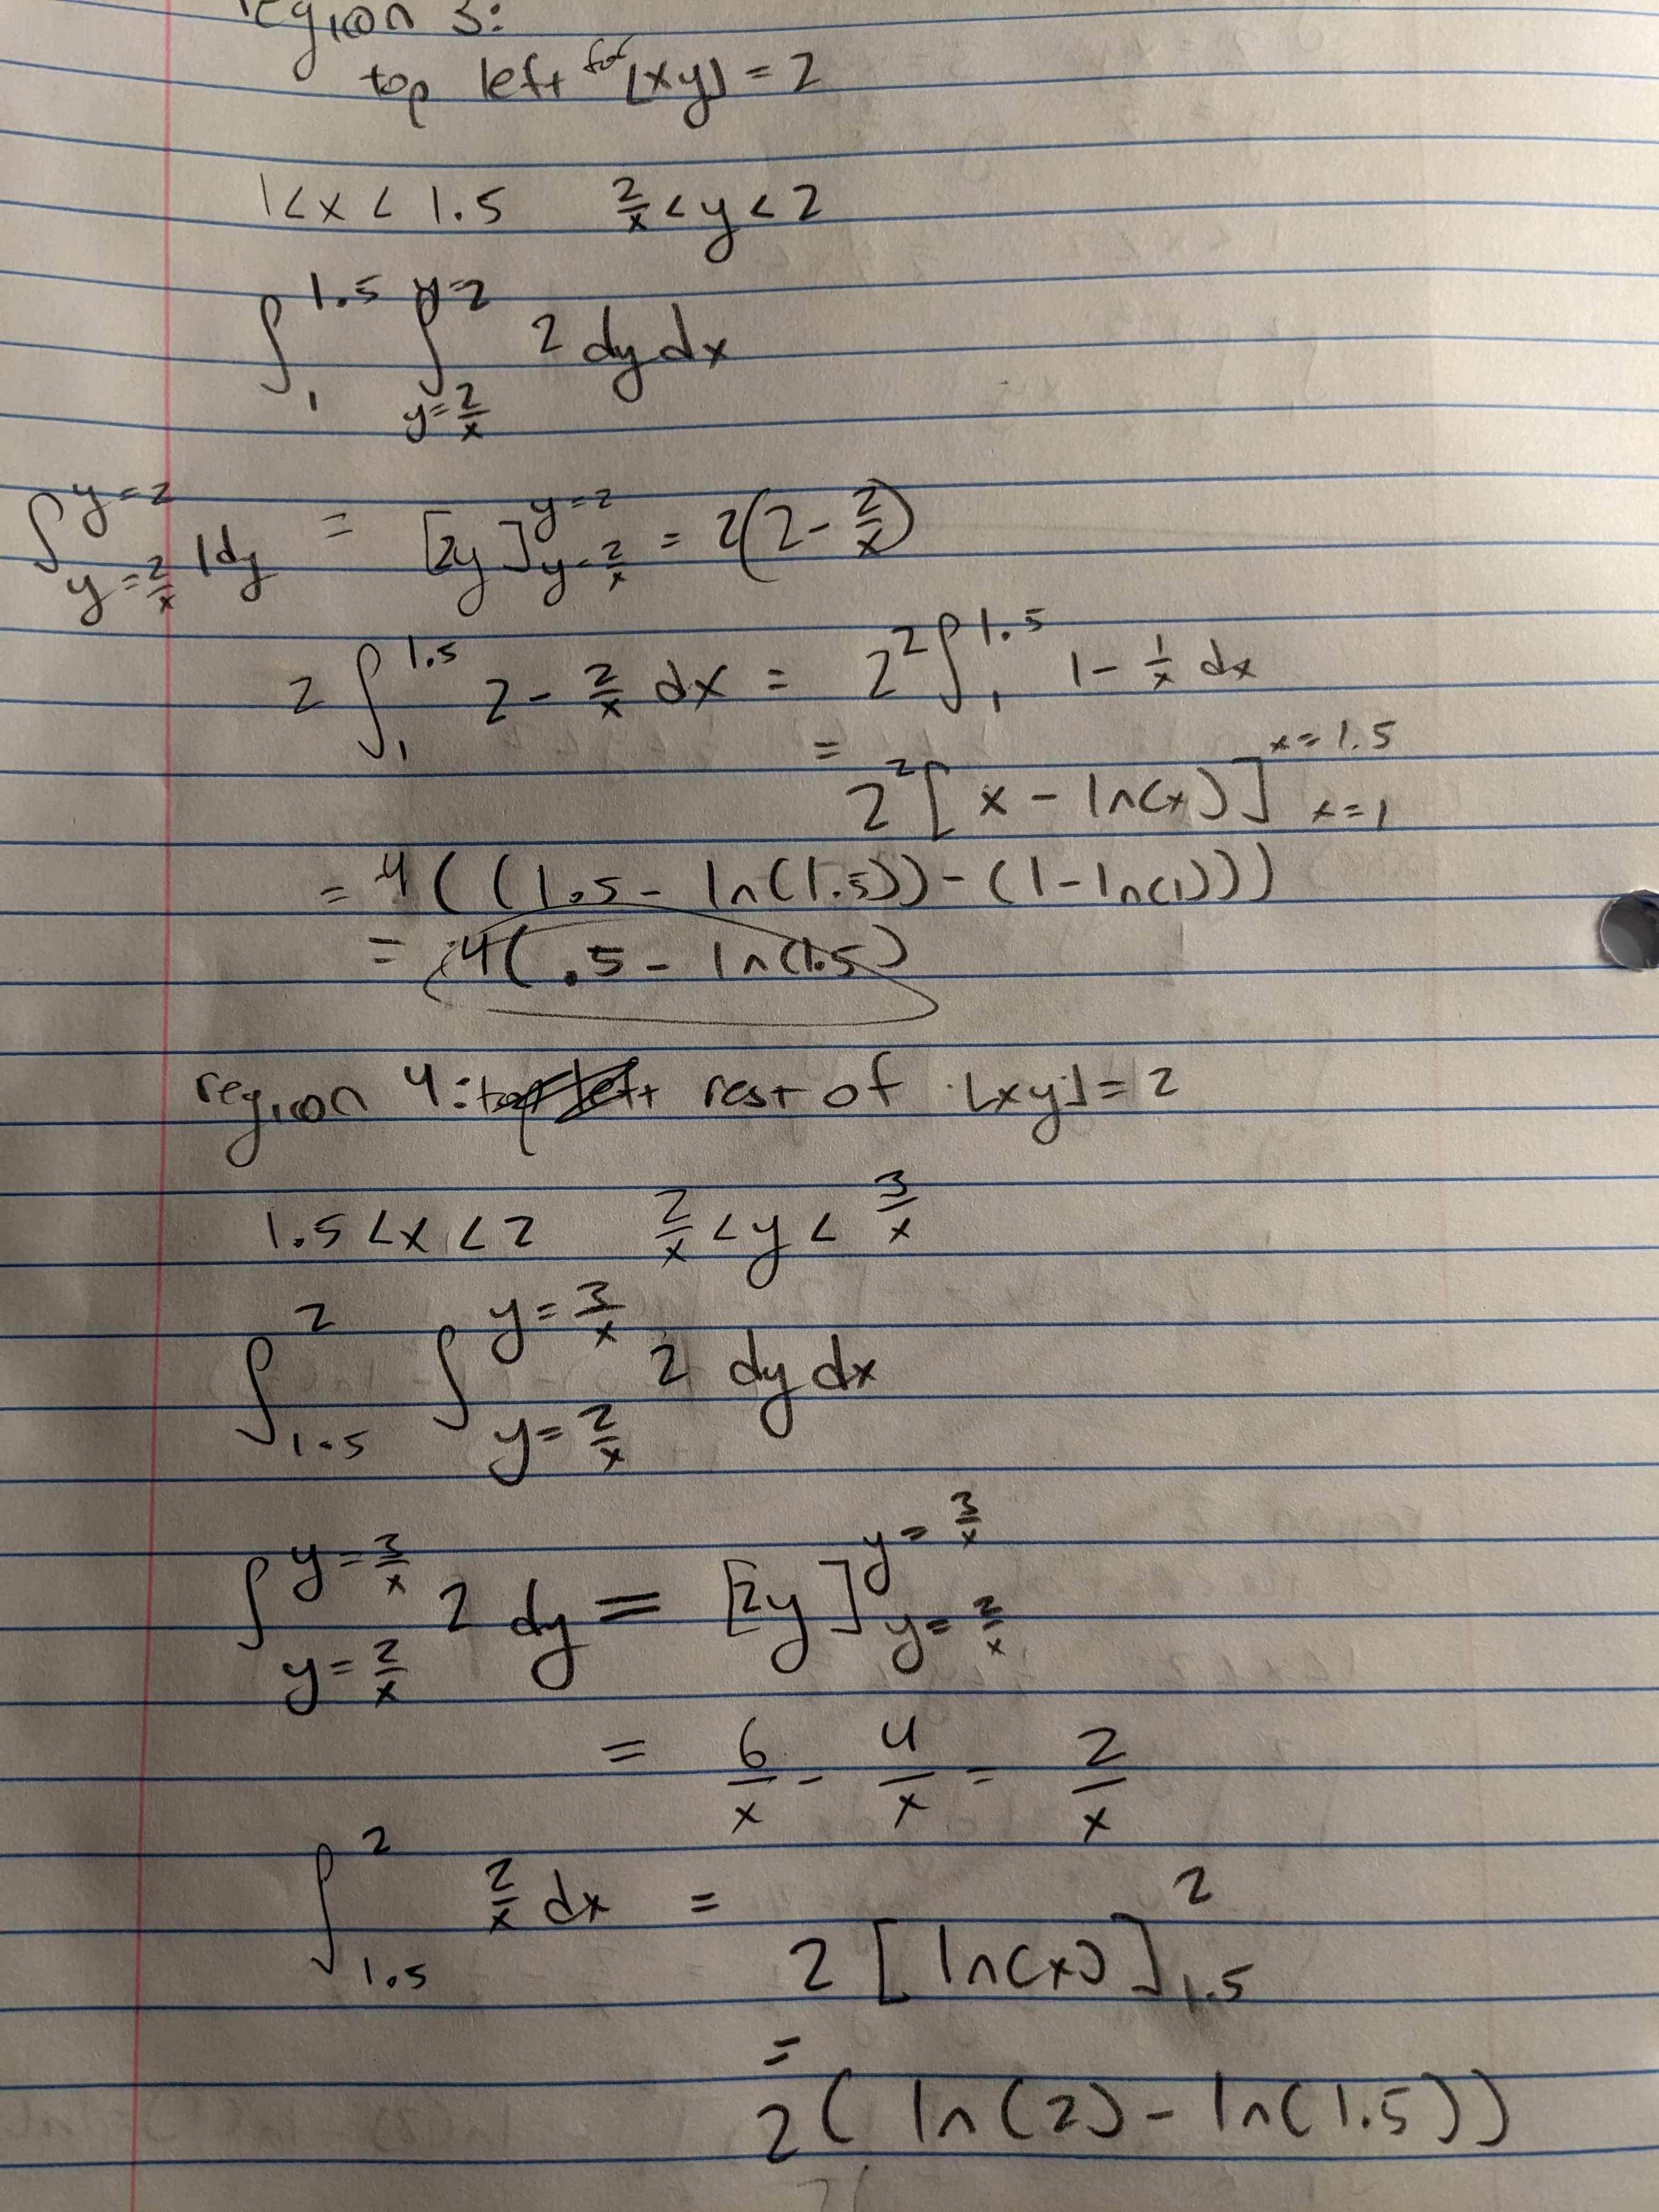 region 3:
top left for ⌊xy⌋ = 2
1 < x < 1.5   2/x < y < 2
∫_1^1.5 ∫_{y=2/x}^{y=2} 2 dy dx
∫_{y=2/x}^{y=2} 1 dy = [2y]_{y=2/x}^{y=2} = 2(2 - 2/x)
2 ∫_1^1.5 2 - 2/x dx = 2^2 ∫_1^1.5 1 - 1/x dx
= 2^2 [x - ln(x)]_{x=1}^{x=1.5}
= 4((1.5 - ln(1.5)) - (1 - ln(1)))
= 4(.5 - ln(1.5)
region 4: top left rest of ⌊xy⌋ = 2
1.5 < x < 2   2/x < y < 3/x
∫_1.5^2 ∫_{y=2/x}^{y=3/x} 2 dy dx
∫_{y=2/x}^{y=3/x} 2 dy = [2y]_{y=2/x}^{y=3/x}
= 6/x - 4/x = 2/x
∫_1.5^2 2/x dx = 2[ln(x)]_1.5^2
=
2(ln(2) - ln(1.5))